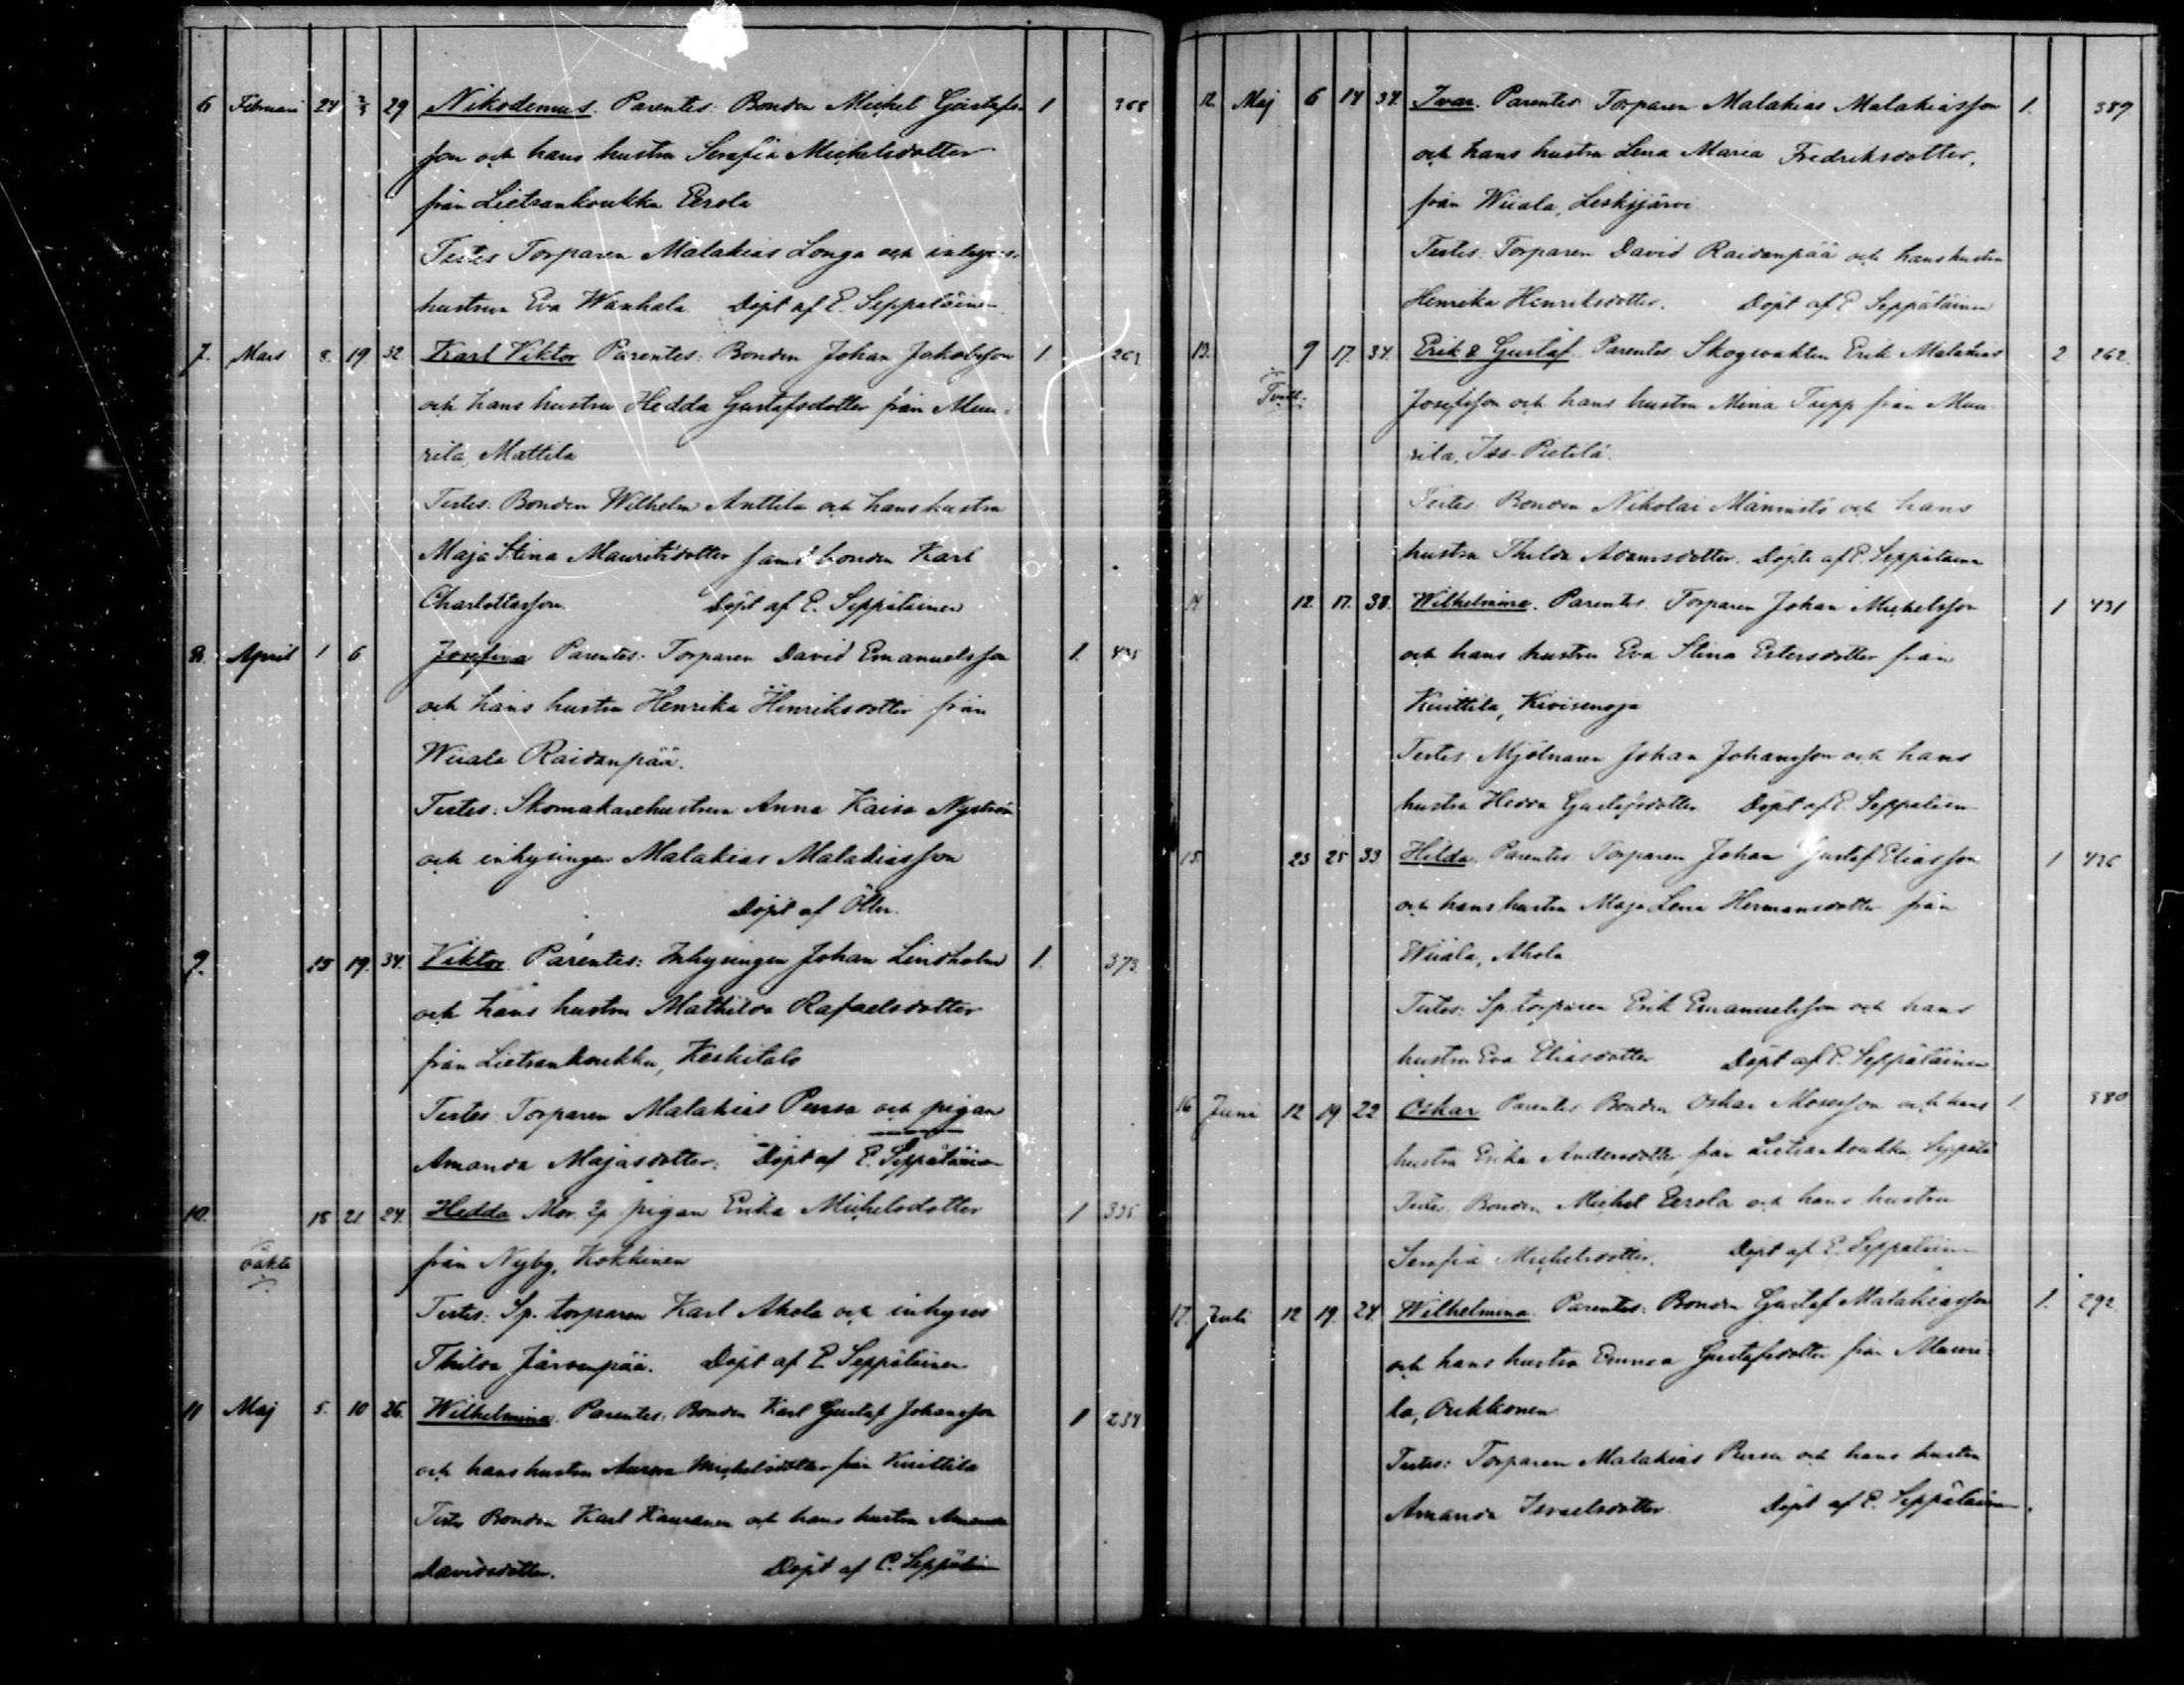 6 Februari 24 2/3 29 Nikodemus. Parentes: Bonden Michel Gustafs- 1 368
son och hans hustru Serafia Michelsdotter
från Lietsankoukku Eerola
Testes Torparen Malakias Longa och inhyses-
hustrun Eva Wanhala Döpt af E. Seppäläinen
7. Mars 8. 19 32 Karl Viktor Parentes: Bonden Johan Jakobsson 1
och hans hustru Hedda Gustafsdotter från Mau-
rila, Mattila
Testes: Bonden Wilhelm Anttila och hans hustru
Maja Stina Mauritsdotter samt bonden Karl
Charlottasson. Döpt af E. Seppäläinen
8. April 1 6 Josefina Parentes: Torparen David Emanuelsson 1. 435
och hans hustru Henrika Henriksdotter från
Wiiala Raidanpää.
Testes: Skomakarehustrun Anna Kaisa Nyström
och inhysingen Malakias Malakiasson
Döpt af
9. 15 19. 34. Viktor. Parentes: Inhysingen Johan Lindholm 1. 373.
och hans hustru Mathilda Rafaelsdotter
från Lietsankoukku, Keskitalo
Testes Torparen Malakias Pursa och pigan
Amanda Majasdotter. Döpt af E. Seppäläinen
10. 18 21. 24. Hedda Mor. pigan Erika Michelsdotter 1 335
oäkta från Nyby, Kokkinen
Testes: Sp. torparen Karl Ahola och inhyses
Thilda Järvenpää. Döpt af E. Seppäläinen
11 Maj 5. 10 26. Wilhelmina. Parentes: Bonden Karl Gustaf Johansson 1 234
och hans hustru Aurora Michelsdotter från Knittilä
Testes Bonden Karl Kauranen och hans hustru Amanda
Davidsdotter. Döpt af E. Seppäläinen
12. Maj 6 14 34. Ivar. Parentes Torparen Malakias Malakiasson 1. 389
och hans hustru Lena Maria Fredriksdotter,
från Wiiala, Leskijärvi
Testes: Torparen David Raidanpää och hans hustru
Henrika Henriksdotter. Döpt af E Seppäläinen
13. 9 17. 34. Erik & Gustaf. Parentes Skogwakten Erik Malakias 2 262.
Tvill. Josefsson och hans hustru Mina Tupp från Mau-
rila, Iso-Pietilä.
Testes: Bonden Nikolai Männistö och hans
hustru Thilda Adamsdotter. Döpte af E. Seppäläinen
14 12. 17. 38. Wilhelmina. Parentes. Torparen Johan Michelsson 1 431
och hans hustru Eva Stina Estersdotter från
Knittilä, Kivisenoja
Testes: Mjölnaren Johan Johansson och hans
hustru Hedda Gustafsdotter Döpt af E. Seppäläinen
15. 23 25 33 Hilda. Parentes Torparen Johan Gustaf Eliasson 1 436
och hans hustru Maja Lena Hermansdotter från
Wiiala, Ahola.
Testes: Sp. torparen Erik Emanuelsson och hans
hustru Eva Eliasdotter Döpt af E. Seppäläinen
16 Juni 12 19. 22. Oskar Parentes Bonden Oskar Mosesson och hans 1. 380
hustru Erika Andersdotter från Lietsankoukku, Seppälä
Testes. Bonden Michel Eerola och hans hustru
Serafia Michelsdotter. Döpt af E. Seppäläinen
17. Juli 12 19. 24. Wilhelmina. Parentes: Bonden Gustaf Malakiasson 1. 292.
och hans hustru Emma Gustafsdotter från Mauri-
la, Oukkonen
Testes: Torparen Malakias Pursa och hans hustru
Amanda Israelsdotter. Döpt af E. Seppäläinen.